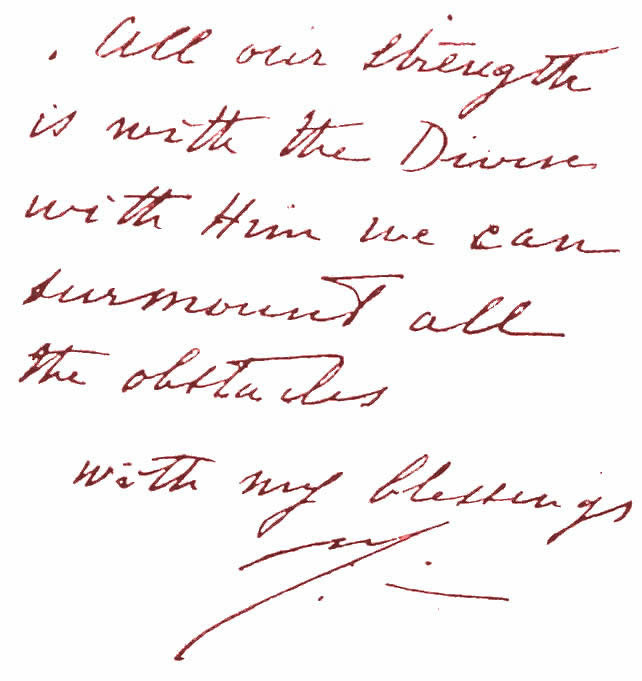 . All our strength
is with the Divine
with Him we can
surmount all
the obstacles
with my blessings